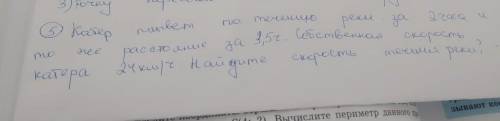 3)
5) Катер плывет по течению реки за 2 часа и
то же расстояние за 1,5 ч. Собственная скорость
катера 24 км/ч Найдите скорость течения реки?
Вычислите периметр данного
зывают